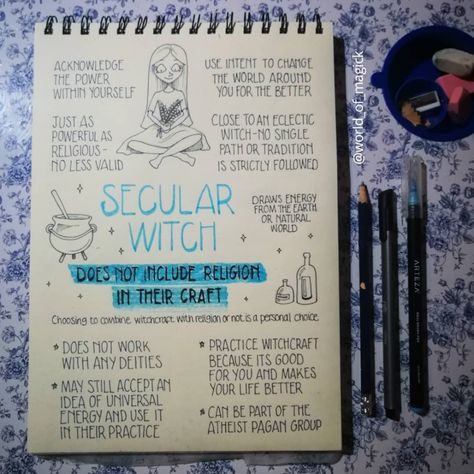 ACKNOWLEDGE
THE POWER
WITHIN YOURSELF
USE INTENT TO CHANGE
THE WORLD AROUND
YOU FOR THE BETTER
JUST AS
POWERFUL AS
RELIGIOUS -
NO LESS VALID
CLOSE TO AN ECLECTIC
WITCH - NO SINGLE
PATH OR TRADITION
IS STRICTLY FOLLOWED
SECULAR
WITCH
DRAWS ENERGY
FROM THE EARTH
OR NATURAL
WORLD
DOES NOT INCLUDE RELIGION
IN THEIR CRAFT
Choosing to combine witchcraft with religion or not is a personal choice
* DOES NOT WORK
WITH ANY DEITIES
* MAY STILL ACCEPT AN
IDEA OF UNIVERSAL
ENERGY AND USE IT
IN THEIR PRACTICE
* PRACTICE WITCHCRAFT
BECAUSE ITS GOOD
FOR YOU AND MAKES
YOUR LIFE BETTER
* CAN BE PART OF THE
ATHEIST PAGAN GROUP
@world_of_magick
ARTEZA